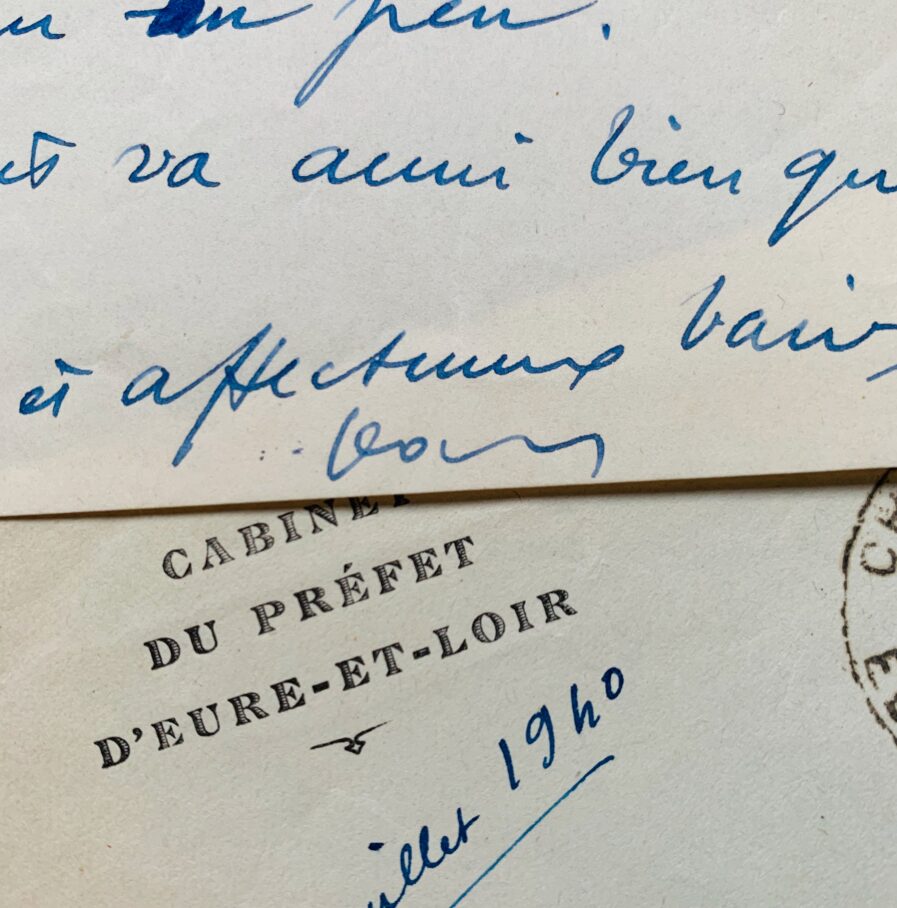 un peu.
va aussi bien qu
et affectueux baisers
CABINET
DU PRÉFET
D'EURE-ET-LOIR
uillet 1940
CH
E